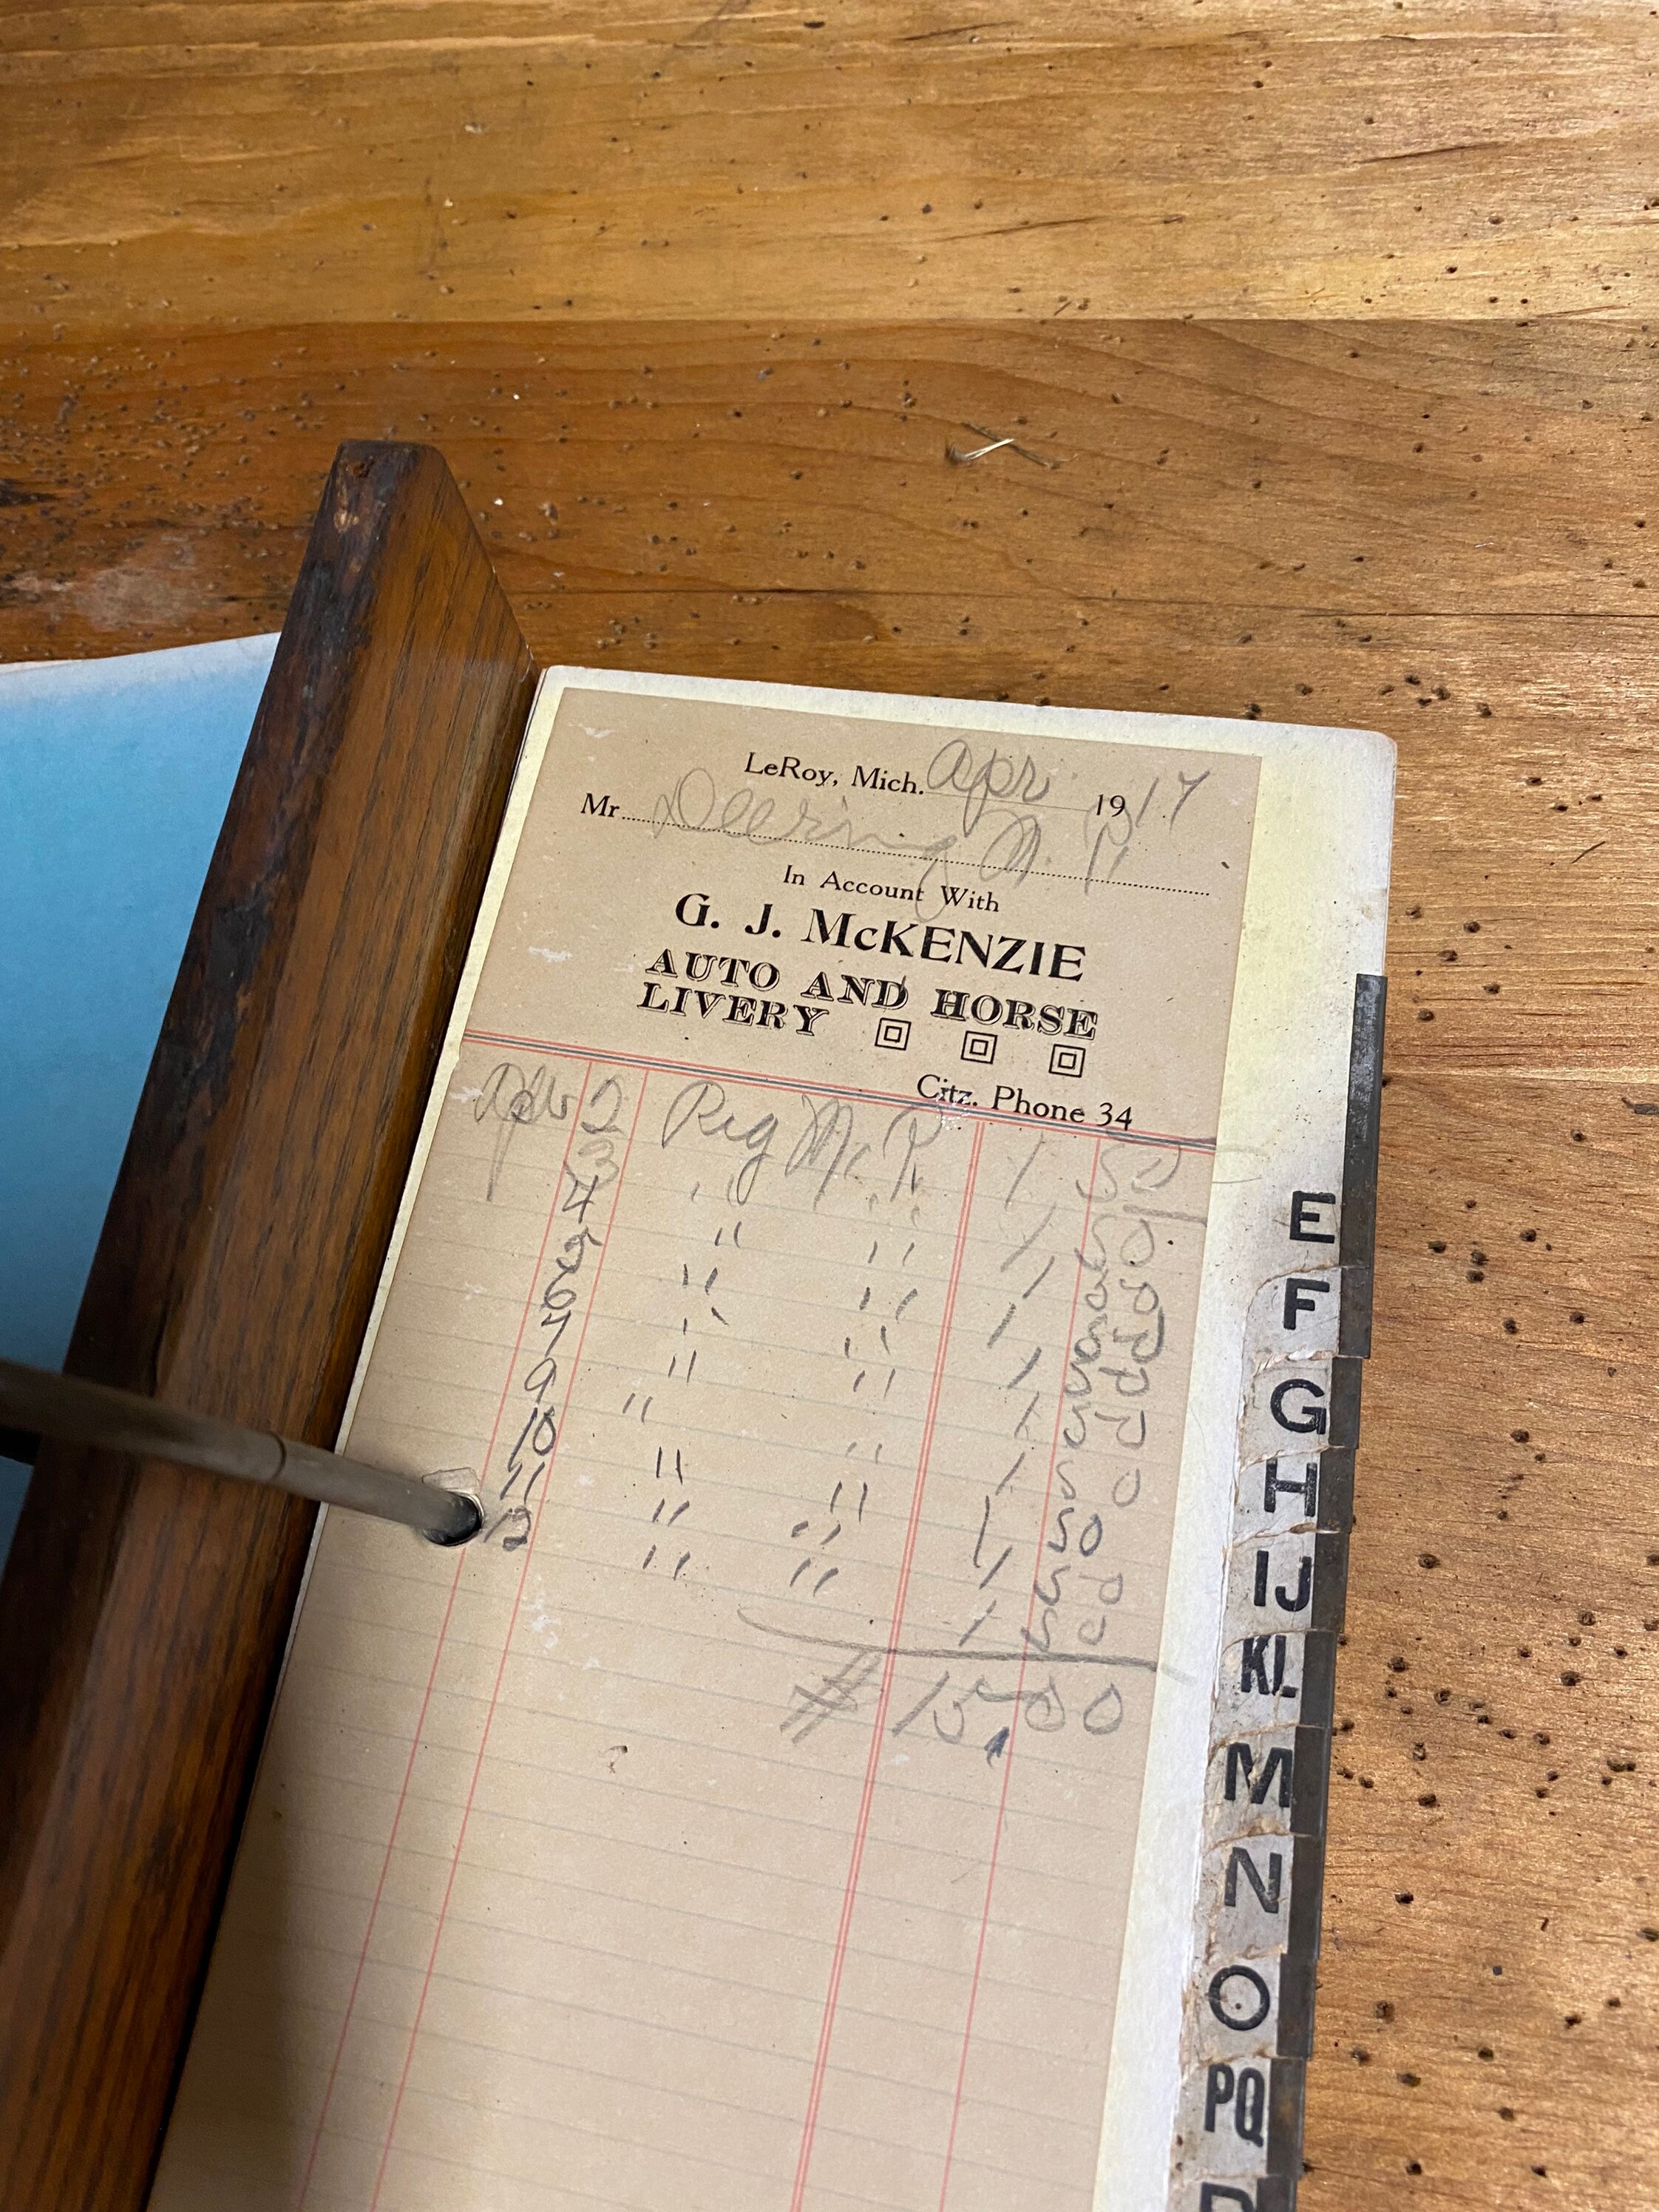 LeRoy, Mich. Apr 1917
Mr. Deering
In Account With
G. J. McKENZIE
AUTO AND HORSE
LIVERY
Citz. Phone 34
Apr 2 Rig 1 50
3 " " 1 50
4 " " 1 50
5 " " 1 50
6 " " 1 50
7 " " 1 50
9 " " 1 50
10 " " 1 50
11 " " 1 50
12 " " 1 50
# 15.00
E
F
G
H
IJ
KL
M
N
O
PQ